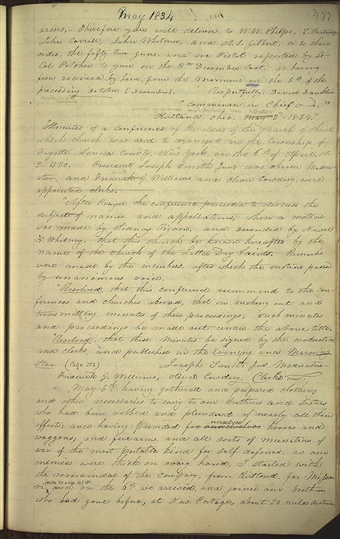 May 1834
477
arms, Therefore you will deliver to W. W. Phelps, E. Partridge,
John Corrill, John Whitmer, and A. S. Gilbert, or to their
order, the fifty two guns, and one Pistol reported by Lt.
Col. Pitcher to you on the 3rd December last, as having
been received by him from the Mormons on the 5th of the
preceding
Respectfully, Daniel Dunklin
Commander in Chief
Kirtland, Ohio, May 3rd 1834.
Minutes of a conference of the elders of the Church of Christ,
which church was organized in the township of
Fayette, Seneca County, New York, on the 6th of April, A.
D. 1830. President Joseph Smith Junr was chosen Moder-
ator, and Frederick G. Williams and Oliver Cowdery, were
appointed clerks.
After Prayer the conference proceeded to discuss the
subject of names and appellations, when a motion
was made by Sidney Rigdon, and seconded by Newel
K. Whitney, that this church be known hereafter by the
name of the church of the Latter Day Saints. Remarks
were made by the members, after which the motion passed
by unanimous voice.
Resolved, that this conference recommend to the con-
ferences and churches abroad, that in making out and
transmitting minutes of their proceedings, such minutes
and proceedings be made out under the above title.
Resolved, that these minutes be signed by the moderator
and clerks, and published in the Evening and Morning
Star. (Page 352)
Joseph Smith Junr Moderator
Frederick G. Williams, Oliver Cowdery, Clerks
May 5th having gathered and prepared clothing
and other necessaries to carry to our brethren and sisters
who had been robbed and plundered of nearly all their
effects, and having provided for ourselves horses and
waggons, and firearms and all sorts of munitions of
war of the most portable kind for self defence, as our
enemies were thick on every hand, I started with
the remainder of the company, from Kirtland, for Missou-
ri, and on the 6th we arrived, and joined our brethren
who had gone before, at New Portage, about 50 miles distance